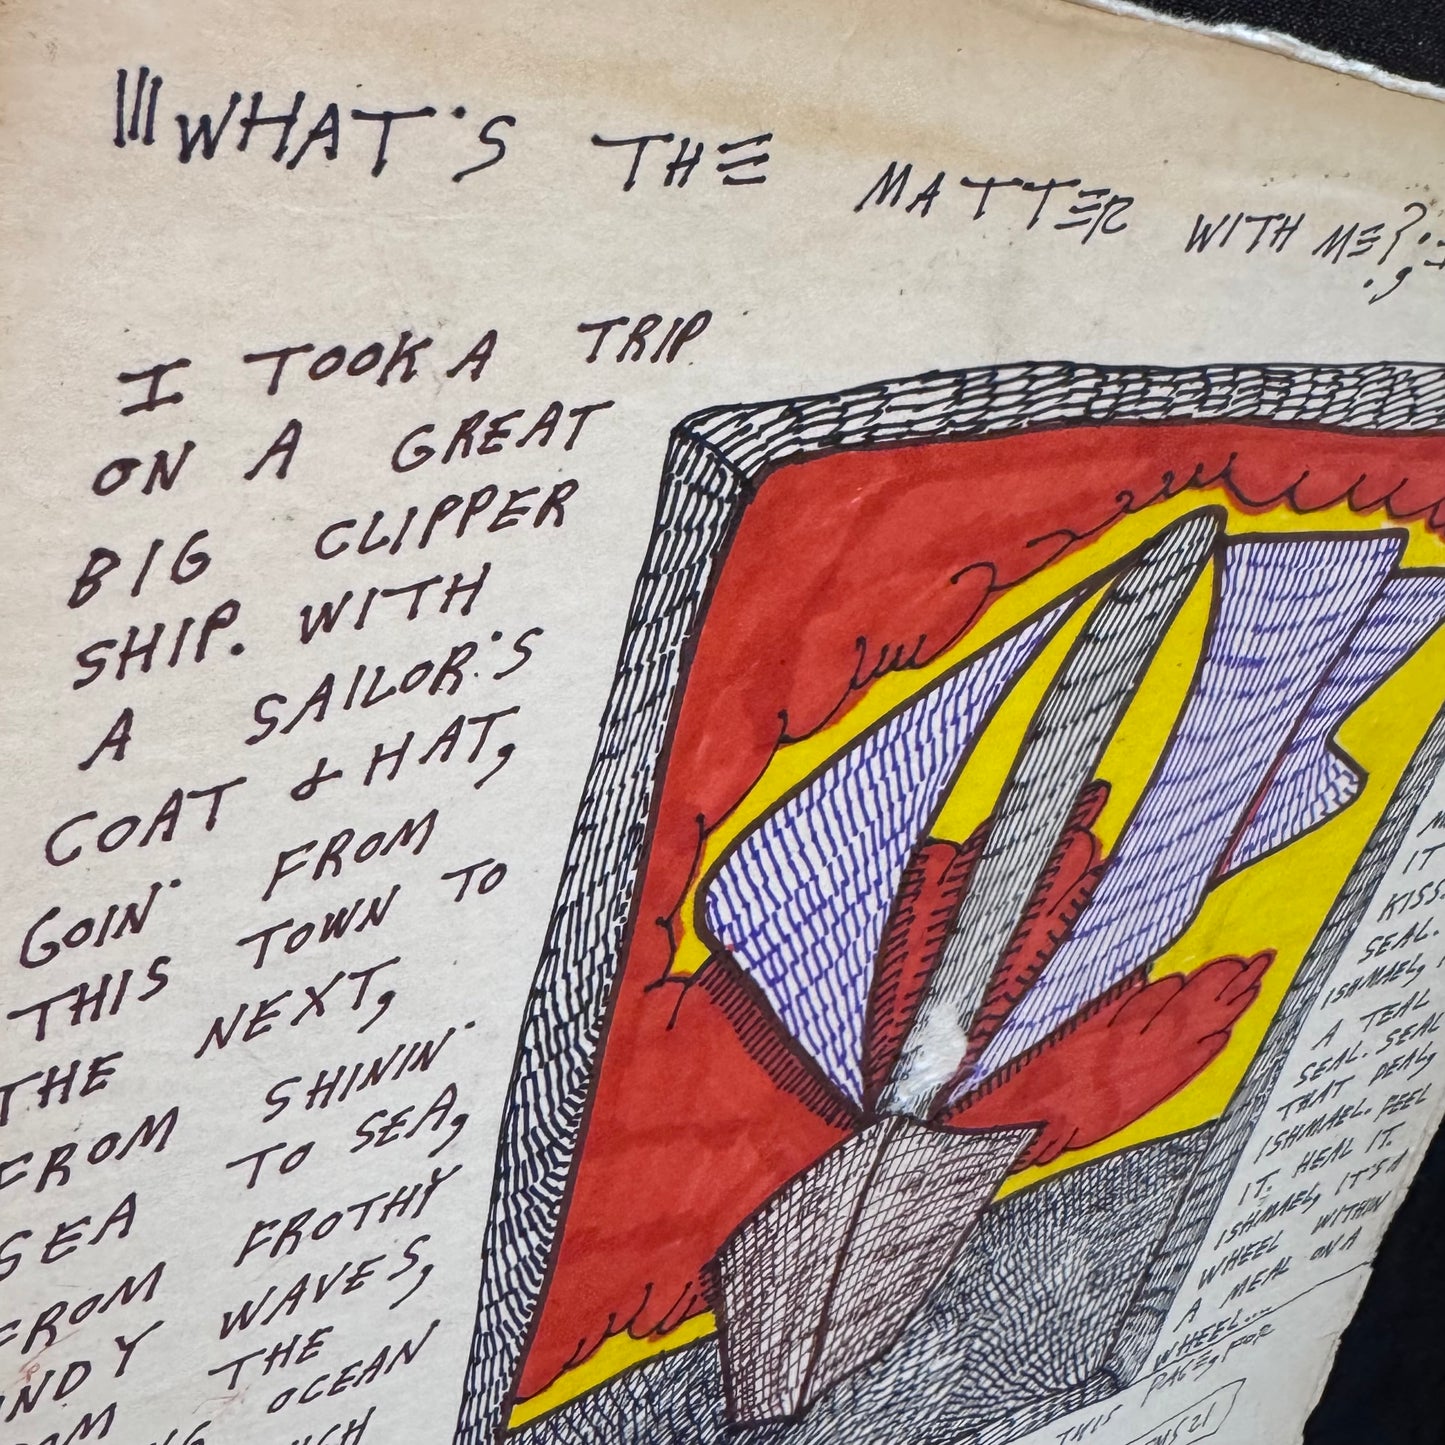 WHAT'S THE MATTER WITH ME?
I TOOK A TRIP
ON A GREAT
BIG CLIPPER
SHIP. WITH
A SAILOR'S
COAT & HAT,
GOIN' FROM
THIS TOWN TO
THE NEXT,
FROM SHININ'
SEA TO SEA,
FROM FROTHY
WAVES,
THE
OCEAN
IT
KISS
SEAL.
ISHMAEL,
A TEAL
SEAL. SEAL
THAT PEAL,
ISHMAEL. FEEL
IT. HEAL IT.
ISHMAEL, IT'S A
WHEEL WITHIN
A MEAL ON A
WHEEL...
THIS PAGE, FOR